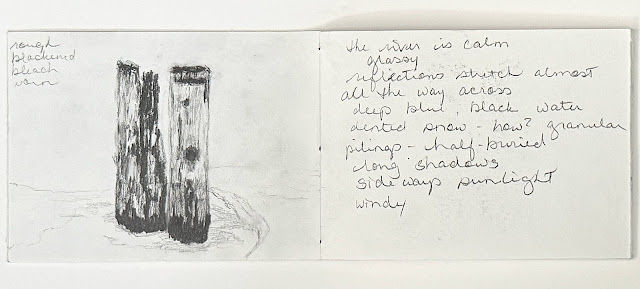 rough
blackened
bleach
worn
the river is calm
glassy
reflections stretch almost
all the way across
deep blue, black water
dented snow - how? granular
pilings - half-buried
long shadows
sideways sunlight
windy